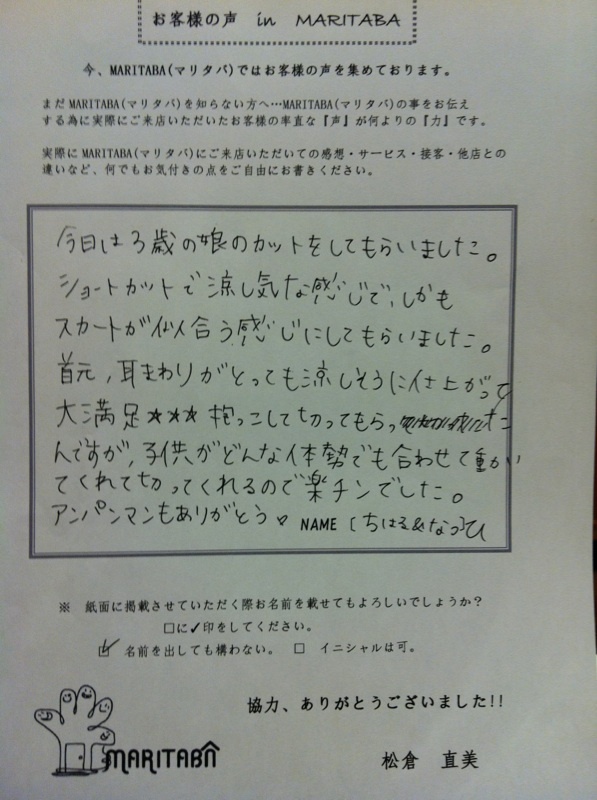 お客様の声 in MARITABA
今、MARITABA(マリタバ)ではお客様の声を集めております。
まだMARITABA(マリタバ)を知らない方へ…MARITABA(マリタバ)の事をお伝え
する為に実際にご来店いただいたお客様の率直な『声』が何よりの『力』です。
実際にMARITABA(マリタバ)にご来店いただいての感想・サービス・接客・他店との
違いなど、何でもお気付きの点をご自由にお書きください。
今日は3歳の娘のカットをしてもらいました。
ショートカットで涼し気な感じで、しかも
スカートが似合う感じにしてもらいました。
首元、耳まわりがとっても涼しそうに仕上がって
大満足★★★ 抱っこして切ってもらった
んですが、子供がどんな体勢でも合わせて動い
てくれて切ってくれるので楽チンでした。
アンパンマンもありがとう♡ NAME [ちはる&なつひ
※ 紙面に掲載させていただく際お名前を載せてもよろしいでしょうか?
□に✓印をしてください。
☑ 名前を出しても構わない。 □ イニシャルは可。
協力、ありがとうございました!!
MARITABA
松倉 直美